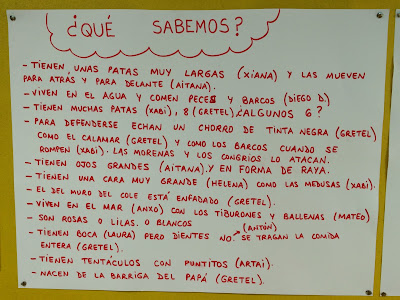 ¿QUÉ SABEMOS?
- TIENEN UNAS PATAS MUY LARGAS (XIANA) Y LAS MUEVEN
PARA ATRÁS Y PARA DELANTE (AITANA).
- VIVEN EN EL AGUA Y COMEN PECES Y BARCOS (DIEGO D.)
- TIENEN MUCHAS PATAS (XABI), 8 (GRETEL) ¿ALGUNOS 6?
- PARA DEFENDERSE ECHAN UN CHORRO DE TINTA NEGRA (GRETEL)
COMO EL CALAMAR (GRETEL) Y COMO LOS BARCOS CUANDO SE
ROMPEN (XABI). LAS MORENAS Y LOS CONGRIOS LO ATACAN.
- TIENEN OJOS GRANDES (AITANA). Y EN FORMA DE RAYA.
- TIENEN UNA CARA MUY GRANDE (HELENA) COMO LAS MEDUSAS (XABI).
- EL DEL MURO DEL COLE ESTÁ ENFADADO (GRETEL).
- VIVEN EN EL MAR (ANXO) CON LOS TIBURONES Y BALLENAS (MATEO)
- SON ROSAS O LILAS. O BLANCOS (ANTÓN)
- TIENEN BOCA (LAURA) PERO DIENTES NO. SE TRAGAN LA COMIDA
ENTERA (GRETEL).
- TIENEN TENTÁCULOS CON PUNTITOS (ARTAI).
- NACEN DE LA BARRIGA DEL PAPÁ (GRETEL).